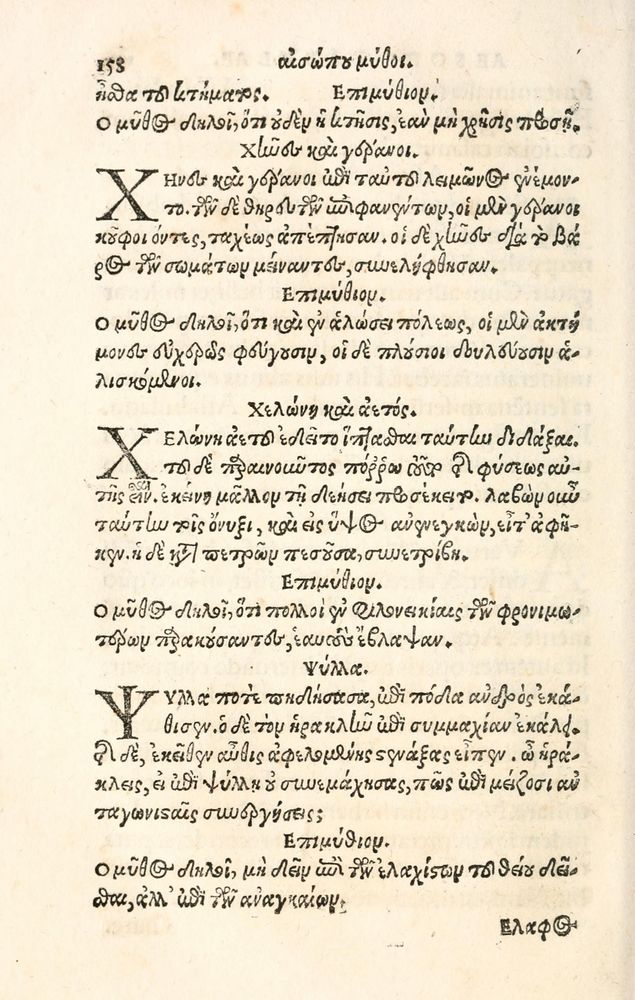 158 αἰσώπου μῦθοι.
ᾖσθα τοῦ κτήματος. Επιμύθιον.
Ο μῦθος δηλοῖ, ὅτι οὐδὲν ἡ κτῆσις, ἐὰν μὴ χρῆσις προσῇ.
Χῆνες καὶ γέρανοι.
ΧΗνες καὶ γέρανοι ἐπὶ ταυτοῦ λειμῶνος ἐνέμον-
το. τῶν δὲ θηρευτῶν ἐπιφανέντων, οἱ μὲν γέρανοι
κοῦφοι ὄντες, ταχέως ἀπέπτησαν. οἱ δὲ χῆνες διὰ τὸ βά
ρος τῶν σωμάτων μείναντες, συνελήφθησαν.
Επιμύθιον.
Ο μῦθος δηλοῖ, ὅτι καὶ ἐν ἁλώσει πόλεως, οἱ μὲν ἀκτή
μονες εὐχερῶς φεύγουσιν, οἱ δὲ πλούσιοι δουλεύουσιν ἁ-
λισκόμενοι.
Χελώνη καὶ ἀετός.
ΧΕλώνη ἀετοῦ ἐδεῖτο ἵπτασθαι ταύτην διδάξαι.
τοῦ δὲ παραινοῦντος πόρρω τοῦτο τῆς φύσεως αὐ-
τῆς εἶναι. ἐκείνη μᾶλλον τῇ δεήσει προσέκειτο. λαβὼν οὖν
ταύτην τοῖς ὄνυξι, καὶ εἰς ὕψος ἀνενεγκὼν, εἶτ' ἀφῆ-
κεν. ἡ δὲ κατὰ πετρῶν πεσοῦσα, συνετρίβη.
Επιμύθιον.
Ο μῦθος δηλοῖ, ὅτι πολλοὶ ἐν φιλονεικίαις τῶν φρονιμω-
τέρων παρακούσαντες, ἑαυτοὺς ἔβλαψαν.
Ψύλλα.
ΨΥλλα ποτὲ πηδήσασα, ἐπὶ πόδα ἀνδρὸς ἐκά-
θισεν. ὁ δὲ τὸν ἡρακλῆν ἐπὶ συμμαχίαν ἐκάλει.
τῆς δὲ, ἐκεῖθεν αὖθις ἀφελομένης στενάξας εἶπεν. ὦ ἡρά-
κλεις, εἰ ἐπὶ ψύλλῃ οὐ συνεμάχησας, πῶς ἐπὶ μείζοσιν ἀν
ταγωνισταῖς συνεργήσεις;
Επιμύθιον.
Ο μῦθος δηλοῖ, μὴ δεῖν ἐπὶ τῶν ἐλαχίστων τοῦ θείου δεῖ-
σθαι, ἀλλ' ἐπὶ τῶν ἀναγκαίων.
Ελαφος